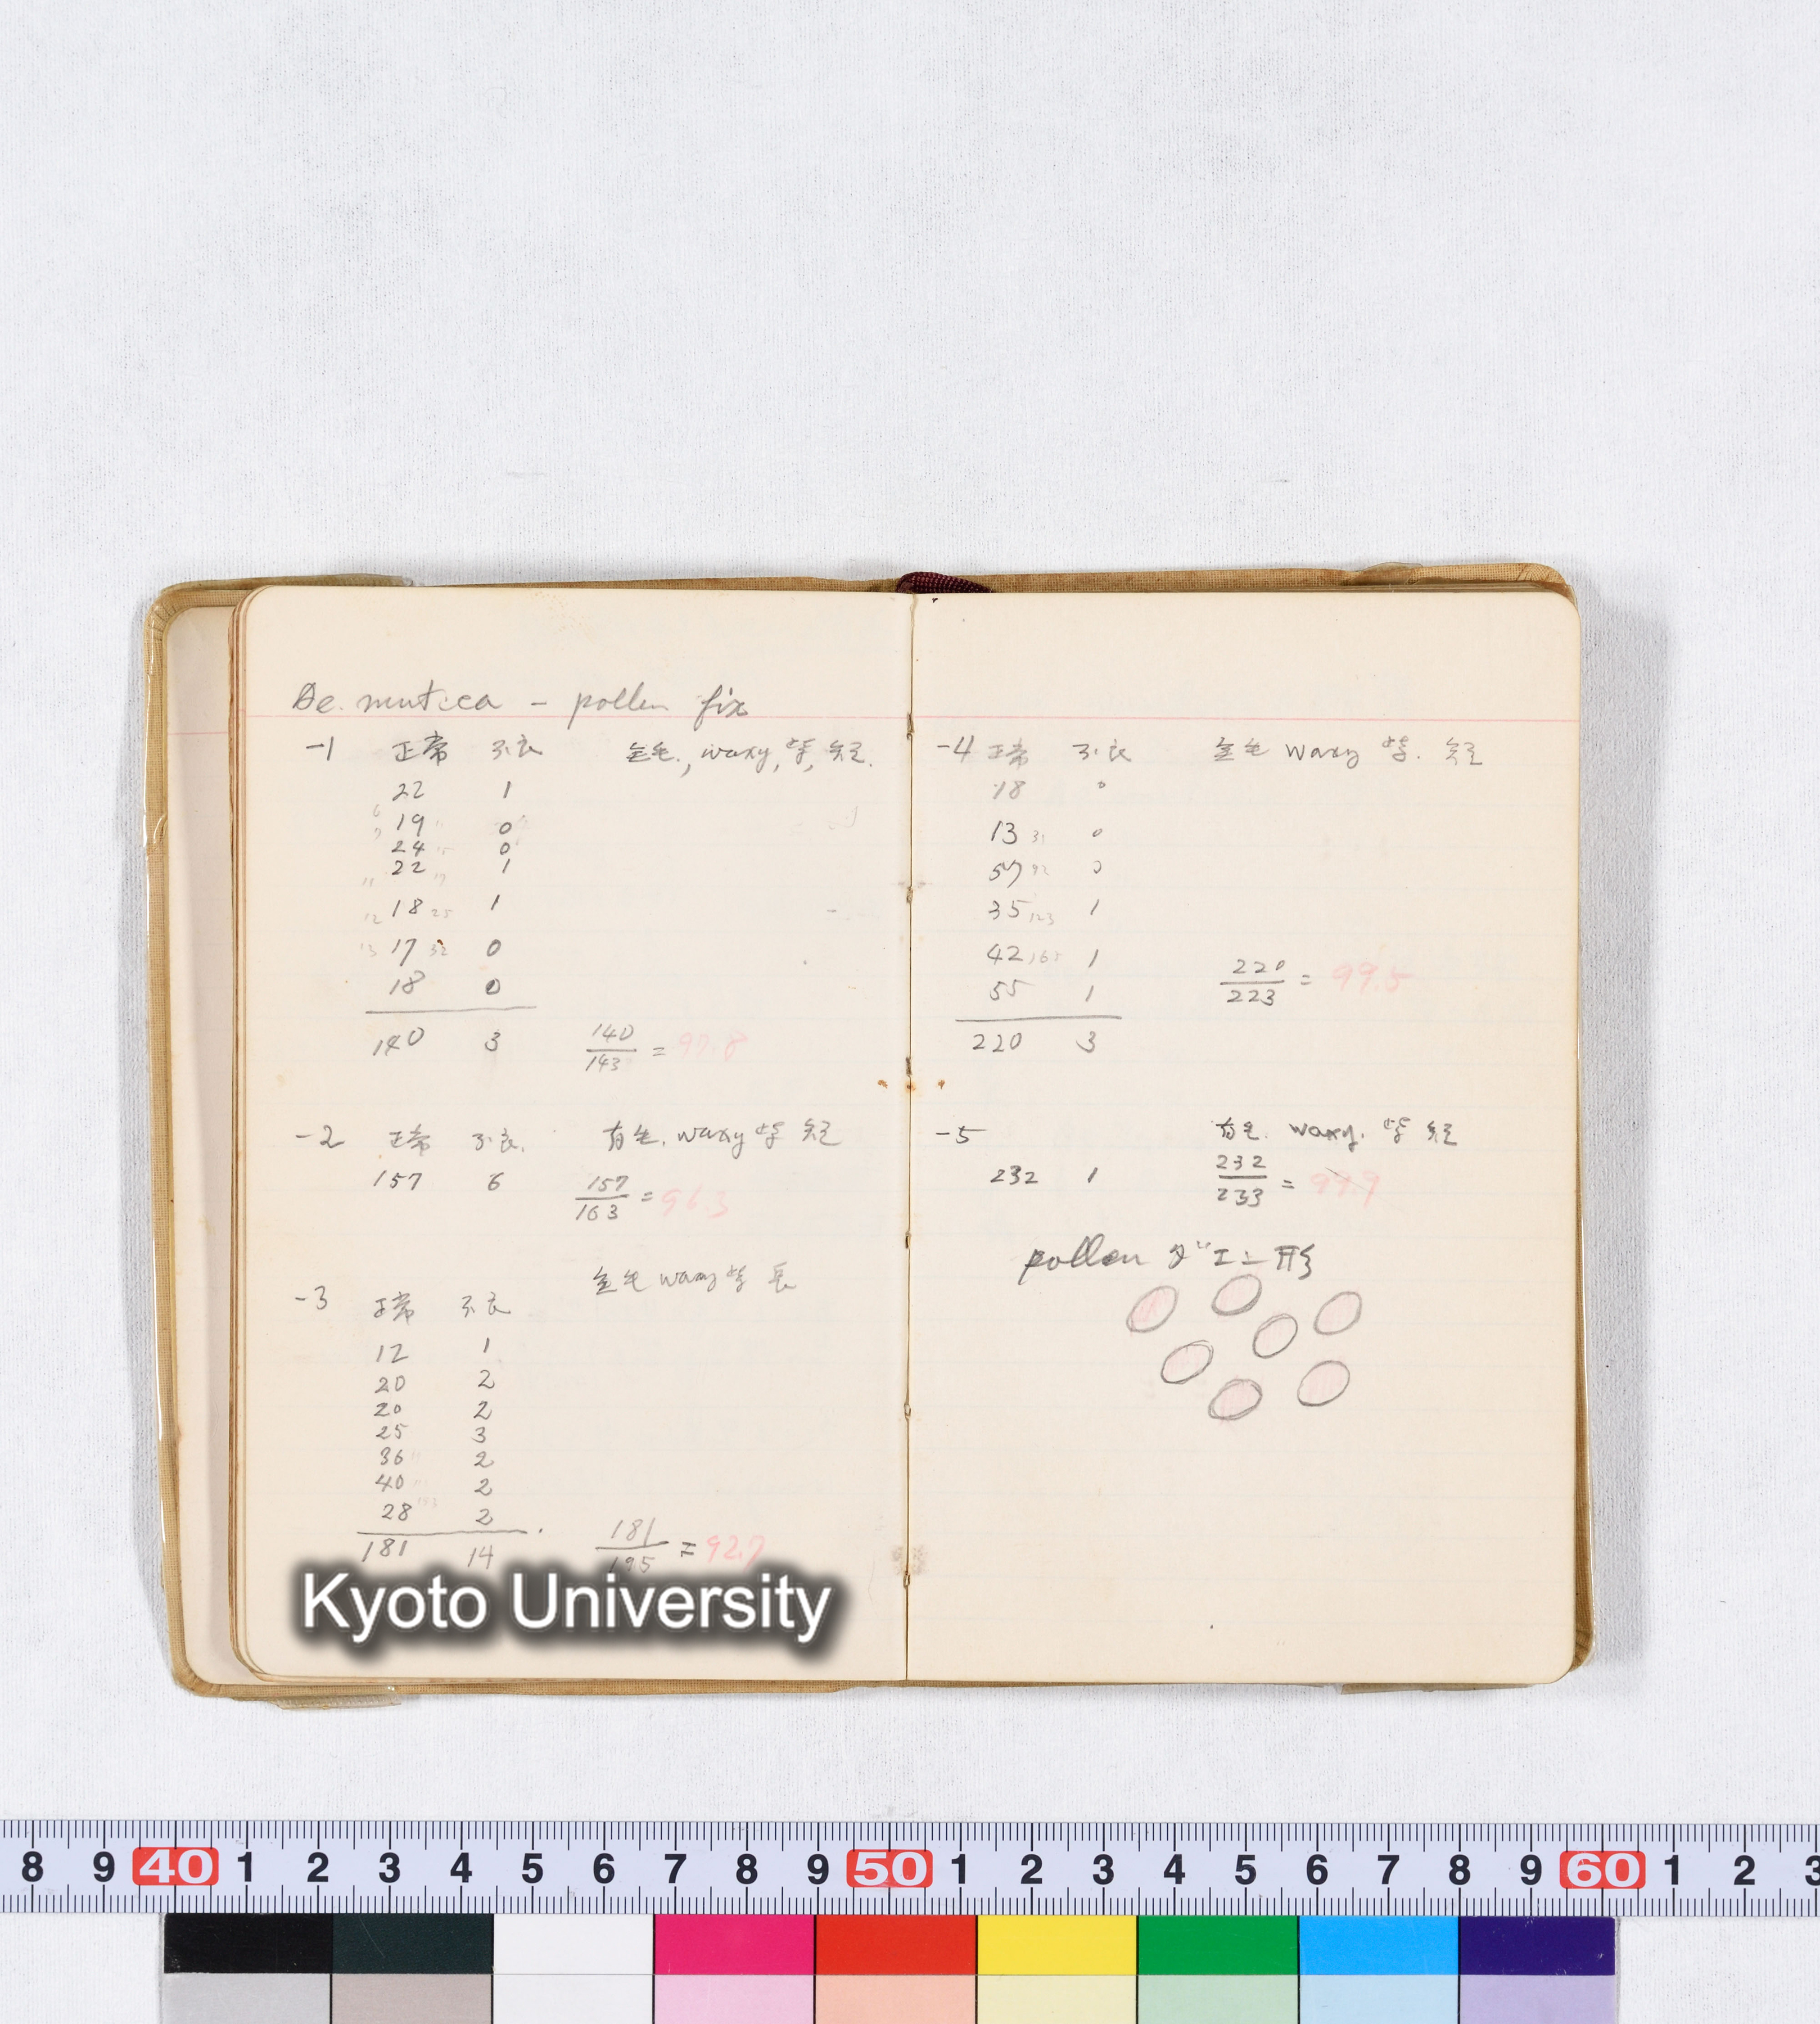 Ae. mutica - pollen fix
-1 正常 不良 無毛, waxy, 紫, 短.
22 1
19 0
24 0
22 1
18 25 1
17 32 0
18 0
140 3 140/143 = 97.8
-2 正常 不良. 有毛. waxy 紫 短
157 6 157/163 = 96.3
無毛 waxy 紫 長
-3 正常 不良
12 1
20 2
20 2
25 3
36 2
40 2
28 2
181 14 181/195 = 92.7
Kyoto University
-4 正常 不良 無毛 waxy 紫. 短
18 0
13 31 0
57 92 0
35 123 1
42 165 1
55 1 220/223 = 99.5
220 3
-5 有毛. waxy. 紫 短
232 1 232/233 = 99.9
pollen ダエン形
8 9 40 1 2 3 4 5 6 7 8 9 50 1 2 3 4 5 6 7 8 9 60 1 2 3